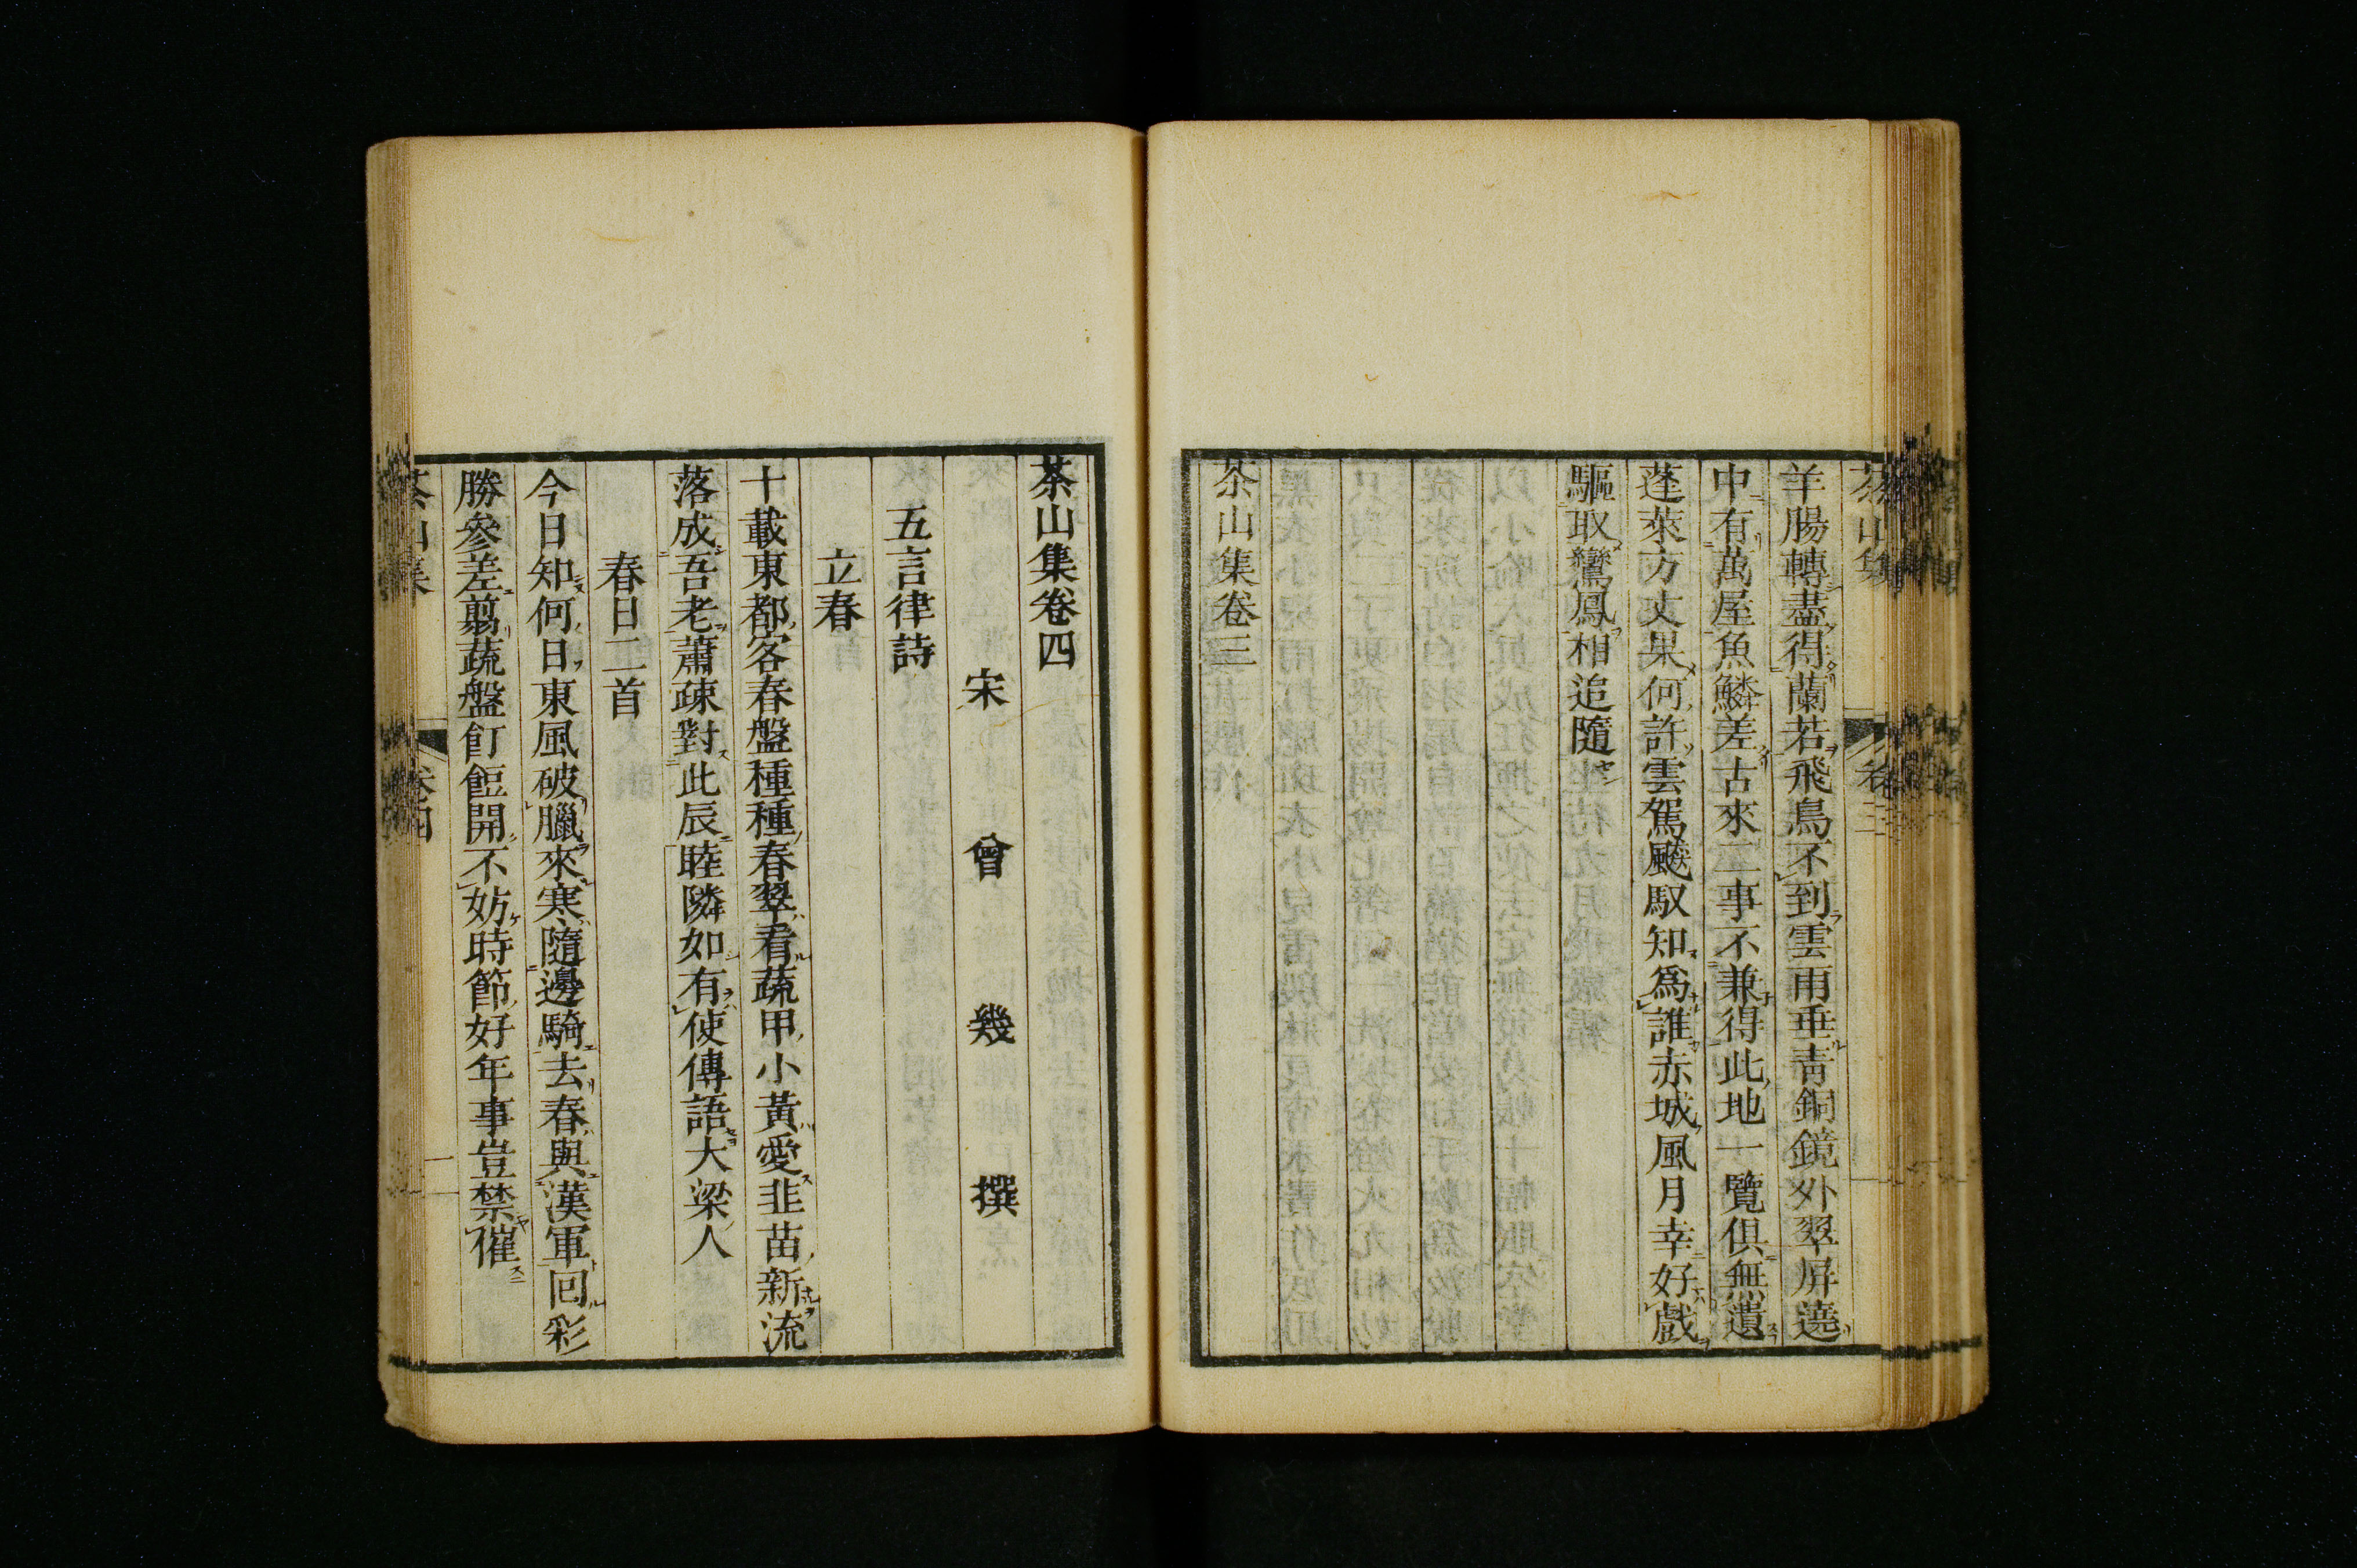 茶山集
羊腸轉盡得蘭若飛鳥不到雲雨垂青銅鏡外翠屏遶
中有萬屋魚鱗差古來二事不兼得此地一覽俱無遺
蓬萊方丈果何許雲駕飈馭知爲誰赤城風月幸好戲
驅取鸞鳳相追隨
茶山集卷三
茶山集卷四
宋 曾 幾 撰
五言律詩
立春
十載東都客春盤種種春翠看蔬甲小黃愛韭苗新流
落成吾老蕭疎對此辰睦隣如有使傳語大梁人
春日二首
今日知何日東風破臘來寒隨邊騎去春與漢軍囘彩
勝參差翦蔬盤飣餖開不妨時節好年事豈禁催
茶山集 卷四 一